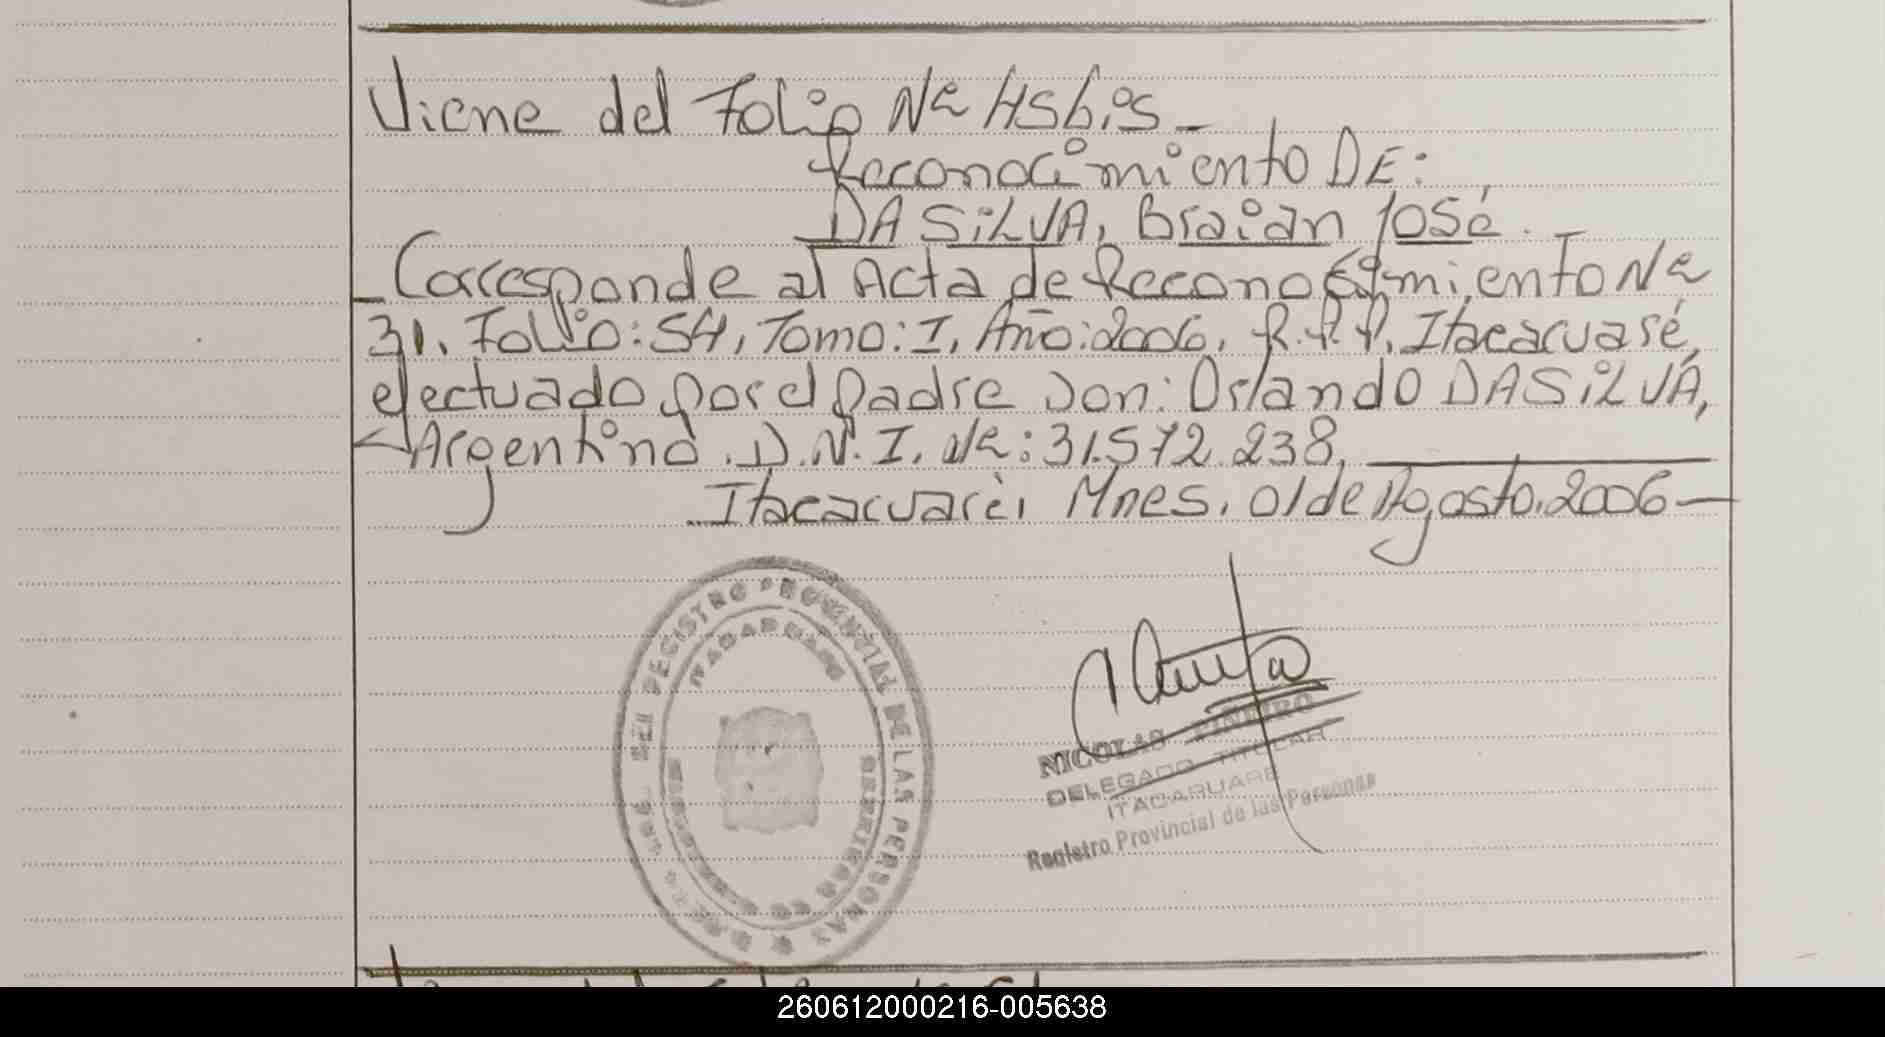 Viene del Folio Nº 45bis_
Reconocimiento DE:
DA SiLVA, Braian José.
_Corresponde al Acta de Reconocimiento Nº
31, Folio: 54, Tomo: I, Año: 2006, R.P.P. Itacacuaré,
efectuado por el padre Don: Orlando DA SiLVA,
Argentino. D.N.I. Nº: 31.572.238,
Itacacuaré, Mnes. 01 de Agosto. 2006
REGISTRO PROVINCIAL DE LAS PERSONAS
NICOLAS PIÑEIRO
DELEGADO TITULAR
ITACARUARE
Registro Provincial de las Personas
260612000216-005638